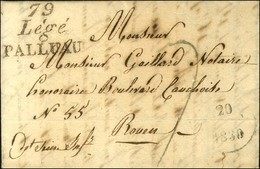 79
Légé
PALLUAU
Monsieur
Monsieur Gaillard Notaire
honoraire Boulevard Cauchoise
N° 55
Rouen
20
1840